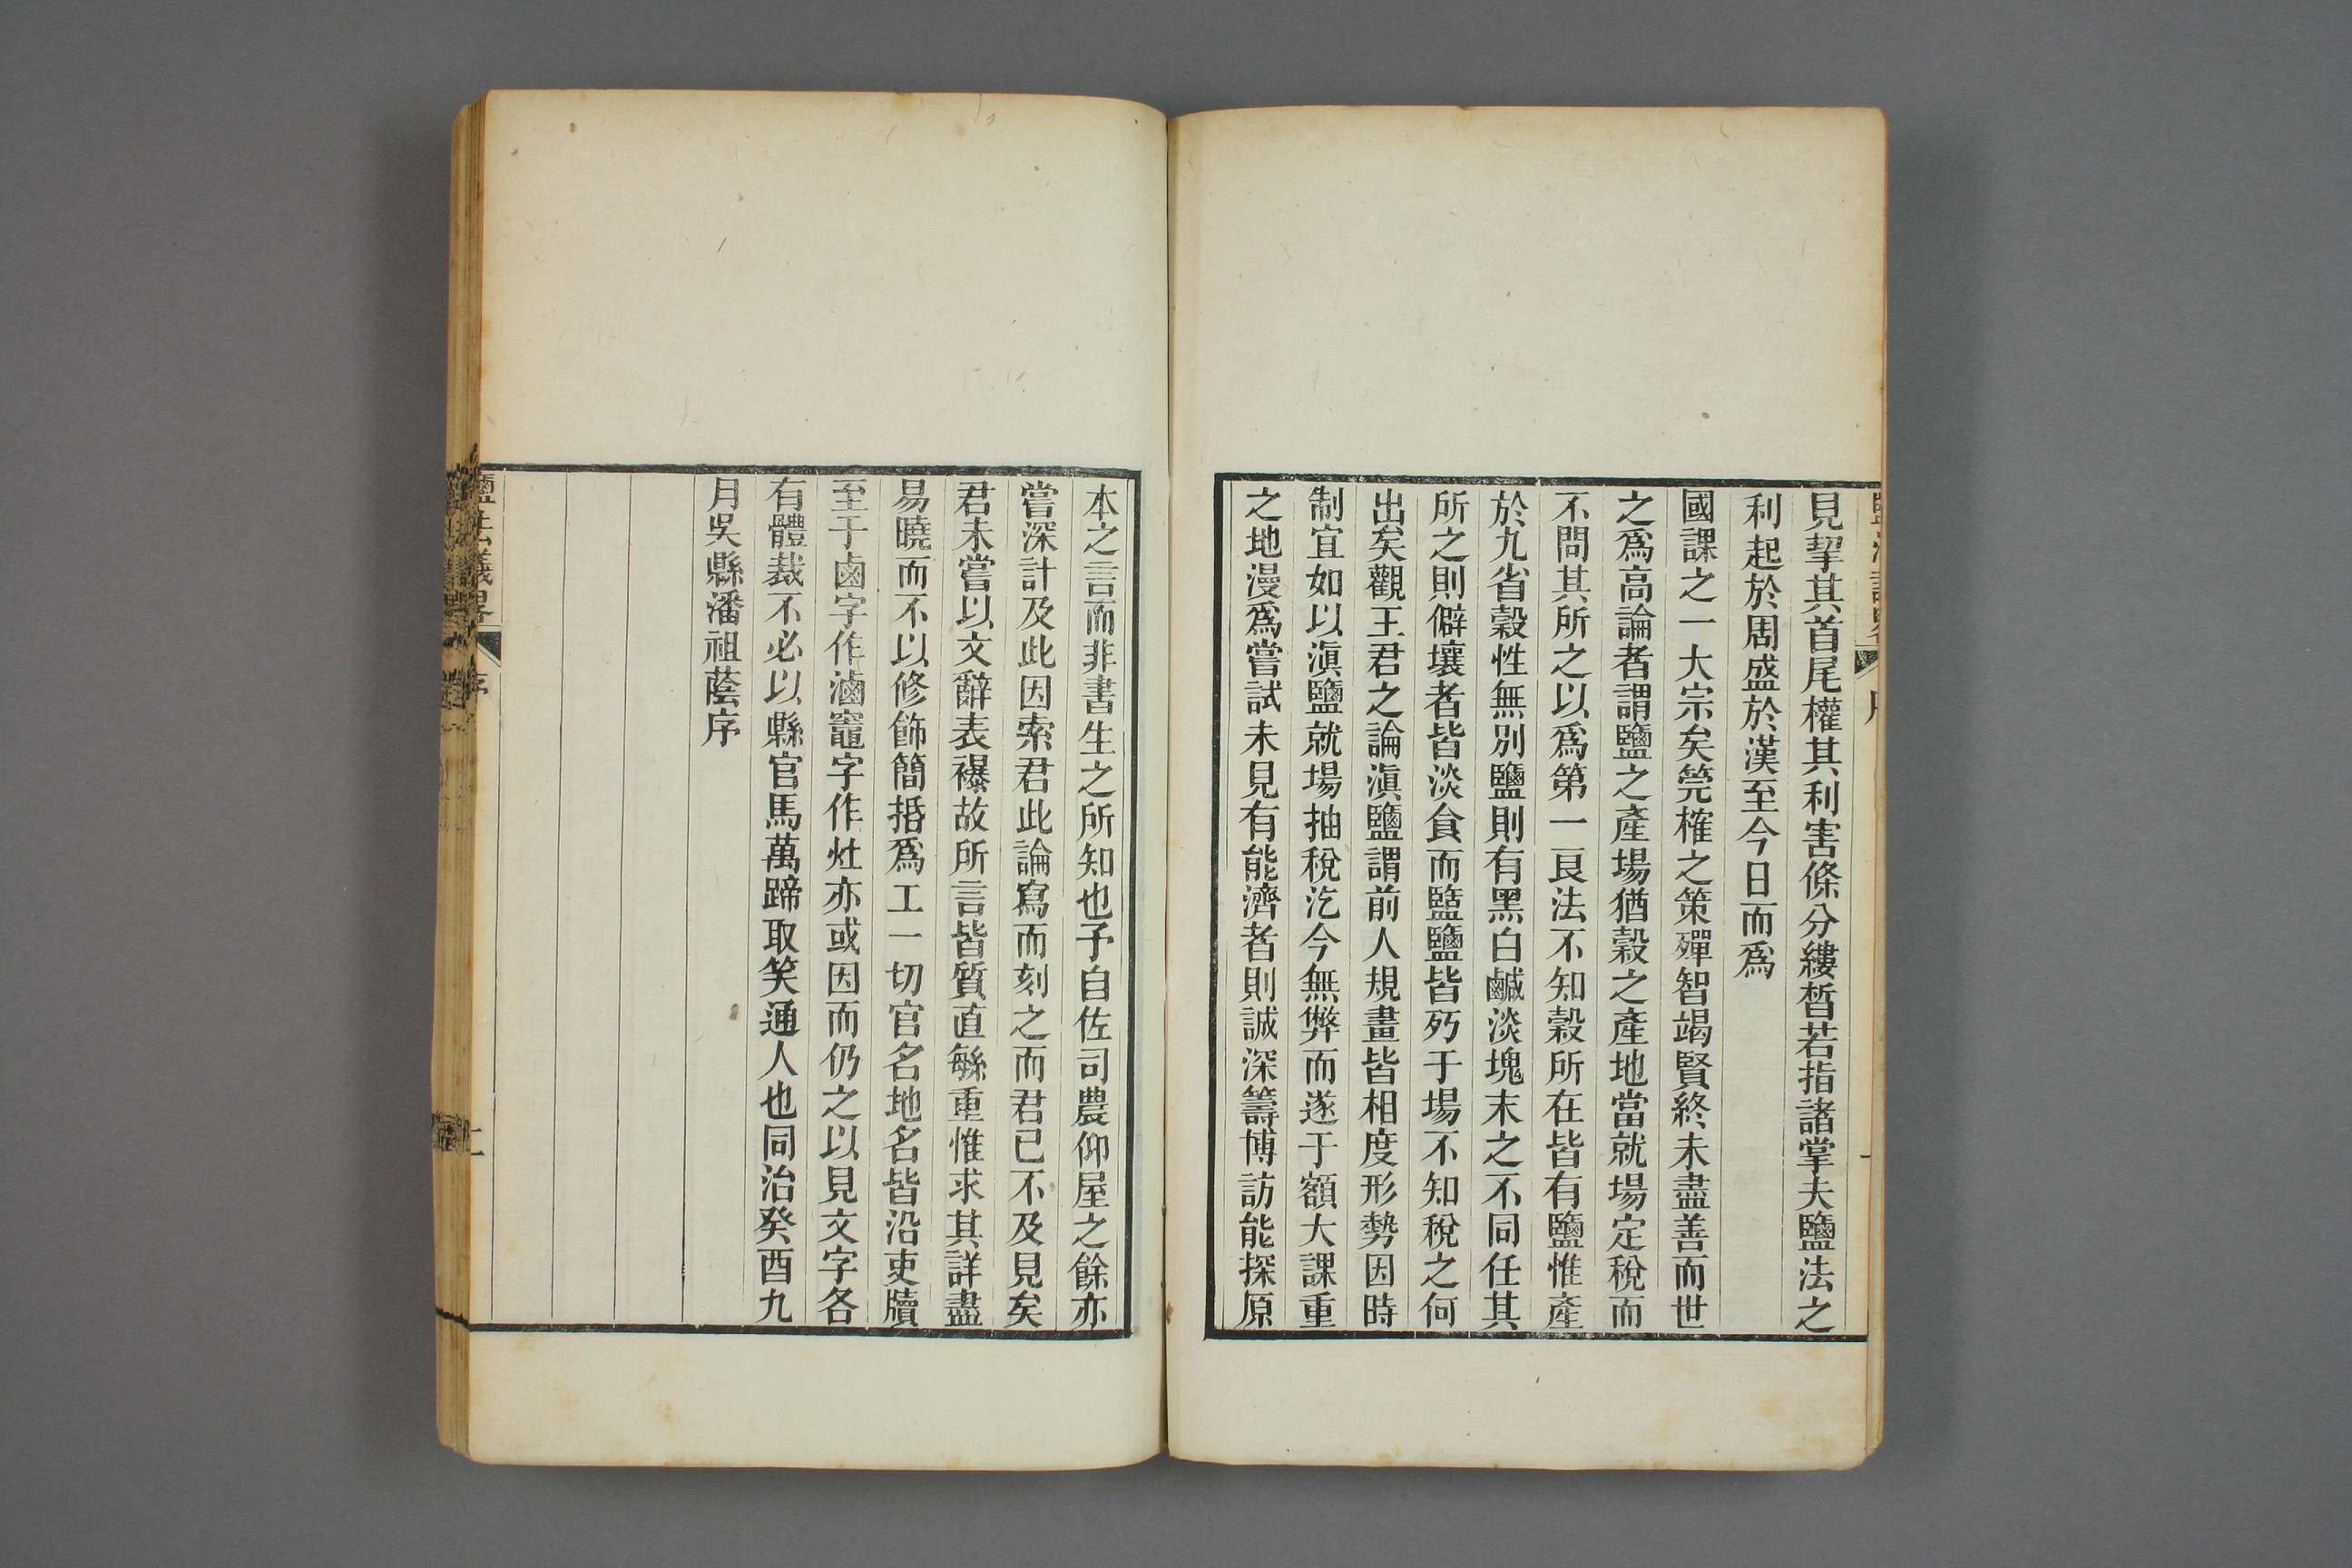 見挈其首尾權其利害條分縷晳若指諸掌夫鹽法之
利起於周盛於漢至今日而爲
國課之一大宗矣筦榷之策殫智竭賢終未盡善而世
之爲高論者謂鹽之產場猶穀之產地當就場定稅而
不問其所之以爲第一良法不知穀所在皆有鹽惟產
於九省穀性無別鹽則有黑白鹹淡塊末之不同任其
所之則僻壤者皆淡食而鹽鹽皆死于場不知稅之何
出矣觀王君之論滇鹽謂前人規畫皆相度形勢因時
制宜如以滇鹽就場抽稅汔今無弊而遂于額大課重
之地漫爲嘗試未見有能濟者則誠深籌博訪能探原
本之言而非書生之所知也予自佐司農仰屋之餘亦
嘗深計及此因索君此論寫而刻之而君已不及見矣
君未嘗以文辭表襮故所言皆質直緐重惟求其詳盡
易曉而不以修飾簡括爲工一切官名地名皆沿吏牘
至于鹵字作滷竈字作灶亦或因而仍之以見文字各
有體裁不必以縣官馬萬蹄取笑通人也同治癸酉九
月吳縣潘祖蔭序
鹽法議畧
序